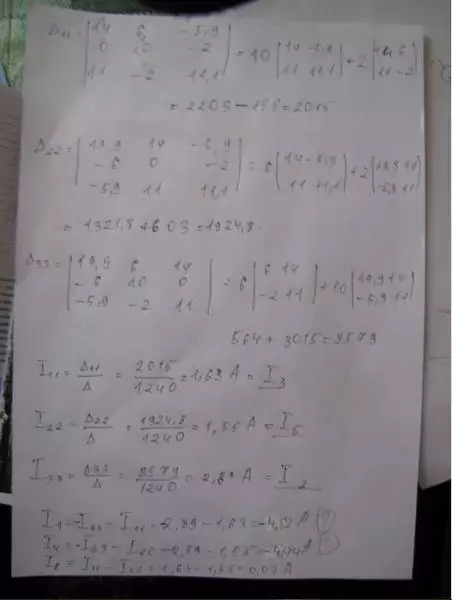 Δ11 = | 14 6 -5,9 | = 10 | 14 -5,9 | + 2 | 14 6 |
| 0 10 -2 | | 11 11,1 | | 11 -2 |
| 11 -2 11,1 |
= 2203 - 188 = 2015
Δ22 = | 19,9 14 -5,9 | = 6 | 14 -5,9 | + 2 | 19,9 14 |
| -6 0 -2 | | 11 11,1 | | -5,9 11 |
| -5,9 11 11,1 |
= 1321,8 + 603 = 1924,8
Δ33 = | 19,9 6 14 | = 6 | 6 14 | + 10 | 19,9 14 |
| -6 10 0 | | -2 11 | | -5,9 11 |
| -5,9 -2 11 |
564 + 3015 = 3579
I11 = Δ11/Δ = 2015/1240 = 1,63 A = I3
I22 = Δ22/Δ = 1924,8/1240 = 1,55 A = I5
I33 = Δ33/Δ = 3579/1240 = 2,89 A = I2
I1 = -I33 - I11 = -2,89 - 1,63 = -4,52 A
I4 = -I33 - I22 = -2,89 - 1,55 = -4,44 A
I6 = I11 - I22 = 1,63 - 1,55 = 0,07 A